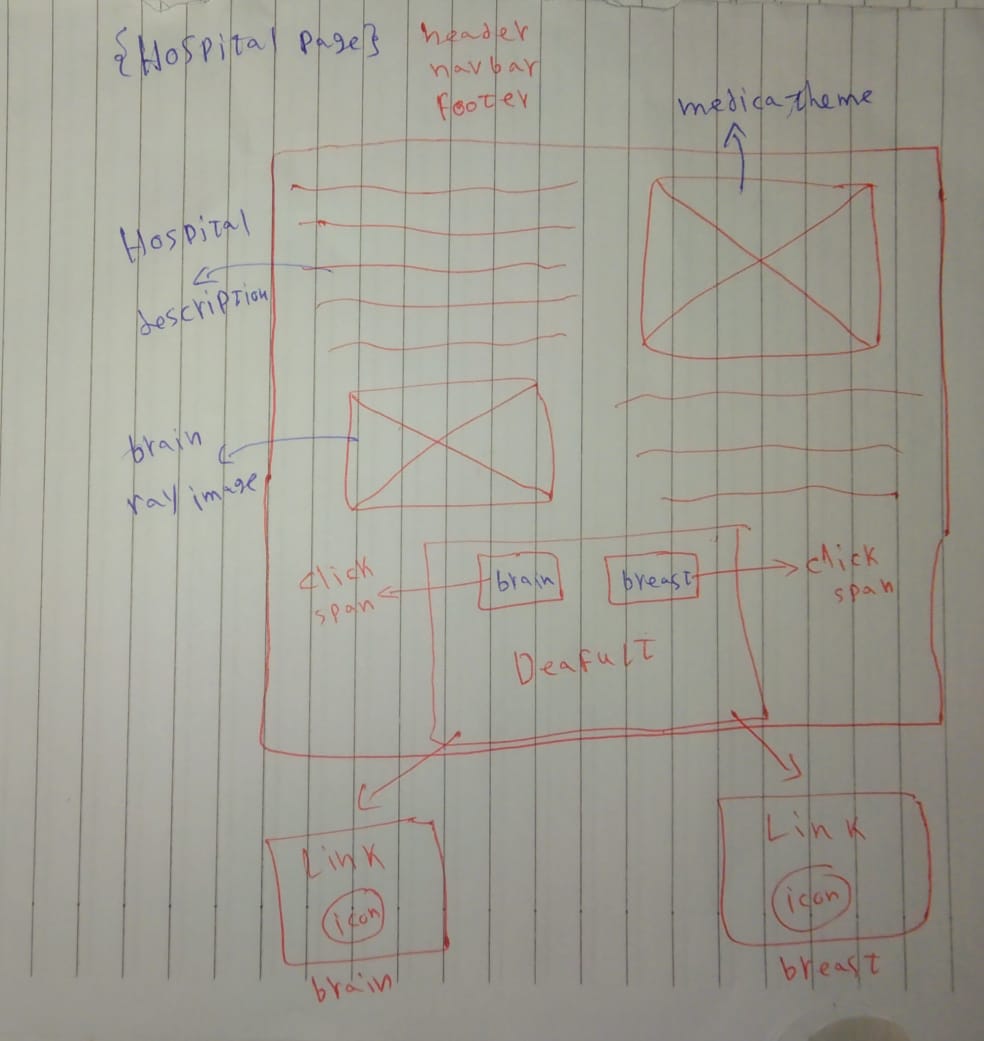 {Hospital page}
header
navbar
footer
medica theme
Hospital
description
brain
ray image
click
span
brain
breast
click
span
Deafult
Link
icon
brain
Link
icon
breast